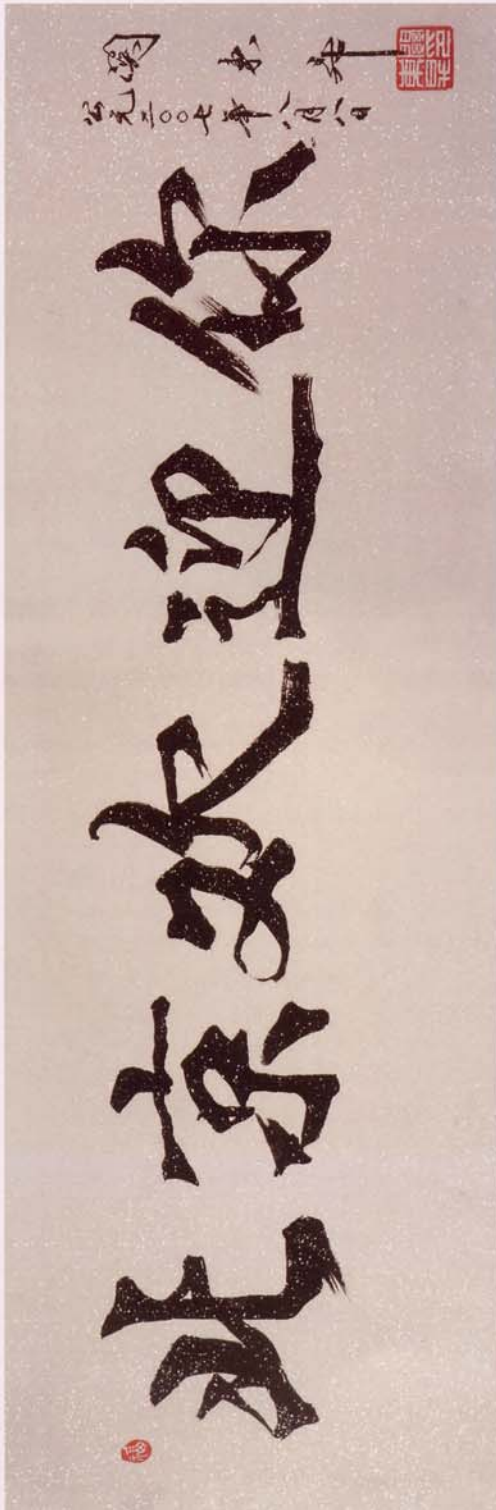 北京欢迎你
公元二〇〇七年八月八日